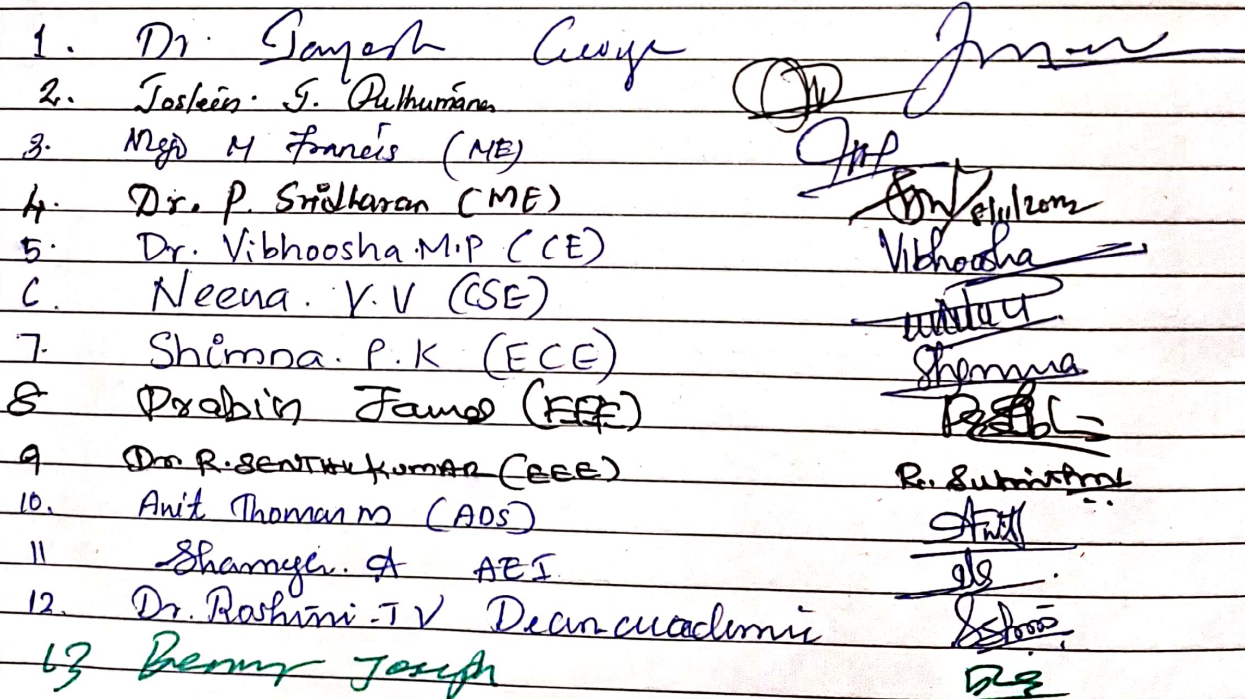 1. Dr. Jayesh George
2. Josleen. J. Puthumana
3. Mejo M Francis (ME)
4. Dr. P. Sridharan (ME) 8/11/2022
5. Dr. Vibhoosha. M.P (CE) Vibhoosha
6. Neena. V.V (CSE)
7. Shimna. P.K (ECE) Shimna
8 Prabin James (EEE)
9 Dr. R. SENTHILKUMAR (EEE)
10. Anit Thomas M (ADS) Anit
11 A AEI
12. Dr. Roshini. T V Dean academic
13 Benny Joseph